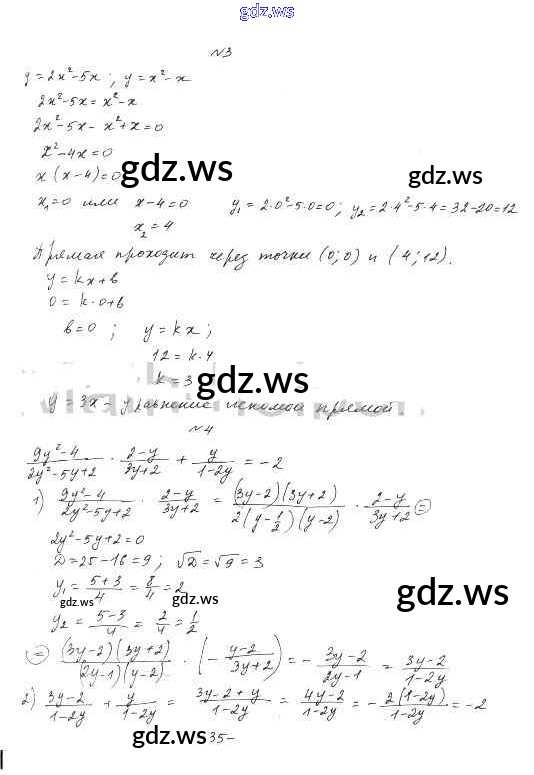 gdz.ws
№3
y=2x²-5x; y=x²-x
2x²-5x=x²-x
2x²-5x-x²+x=0
x²-4x=0
x(x-4)=0
gdz.ws
gdz.ws
x₁=0 или x-4=0 y₁=2·0²-5·0=0; y₂=2·4²-5·4=32-20=12
x₂=4
Прямая проходит через точки (0;0) и (4;12).
y=kx+b
0=k·0+b
b=0; y=kx;
12=k·4
k=3
gdz.ws
y=3x - уравнение искомой прямой.
№4
(9y²-4)/(2y²-5y+2) · (2-y)/(3y+2) + y/(1-2y) = -2
1) (9y²-4)/(2y²-5y+2) · (2-y)/(3y+2) = ((3y-2)(3y+2))/(2(y-1/2)(y-2)) · (2-y)/(3y+2) =
2y²-5y+2=0
D=25-16=9; √D=√9=3
y₁=(5+3)/4=8/4=2
gdz.ws
gdz.ws
gdz.ws
y₂=(5-3)/4=2/4=1/2
= ((3y-2)(3y+2))/((2y-1)(y-2)) · (-(y-2)/(3y+2)) = -(3y-2)/(2y-1) = (3y-2)/(1-2y)
2) (3y-2)/(1-2y) + y/(1-2y) = (3y-2+y)/(1-2y) = (4y-2)/(1-2y) = -(2(1-2y))/(1-2y) = -2
gdz.ws
35-